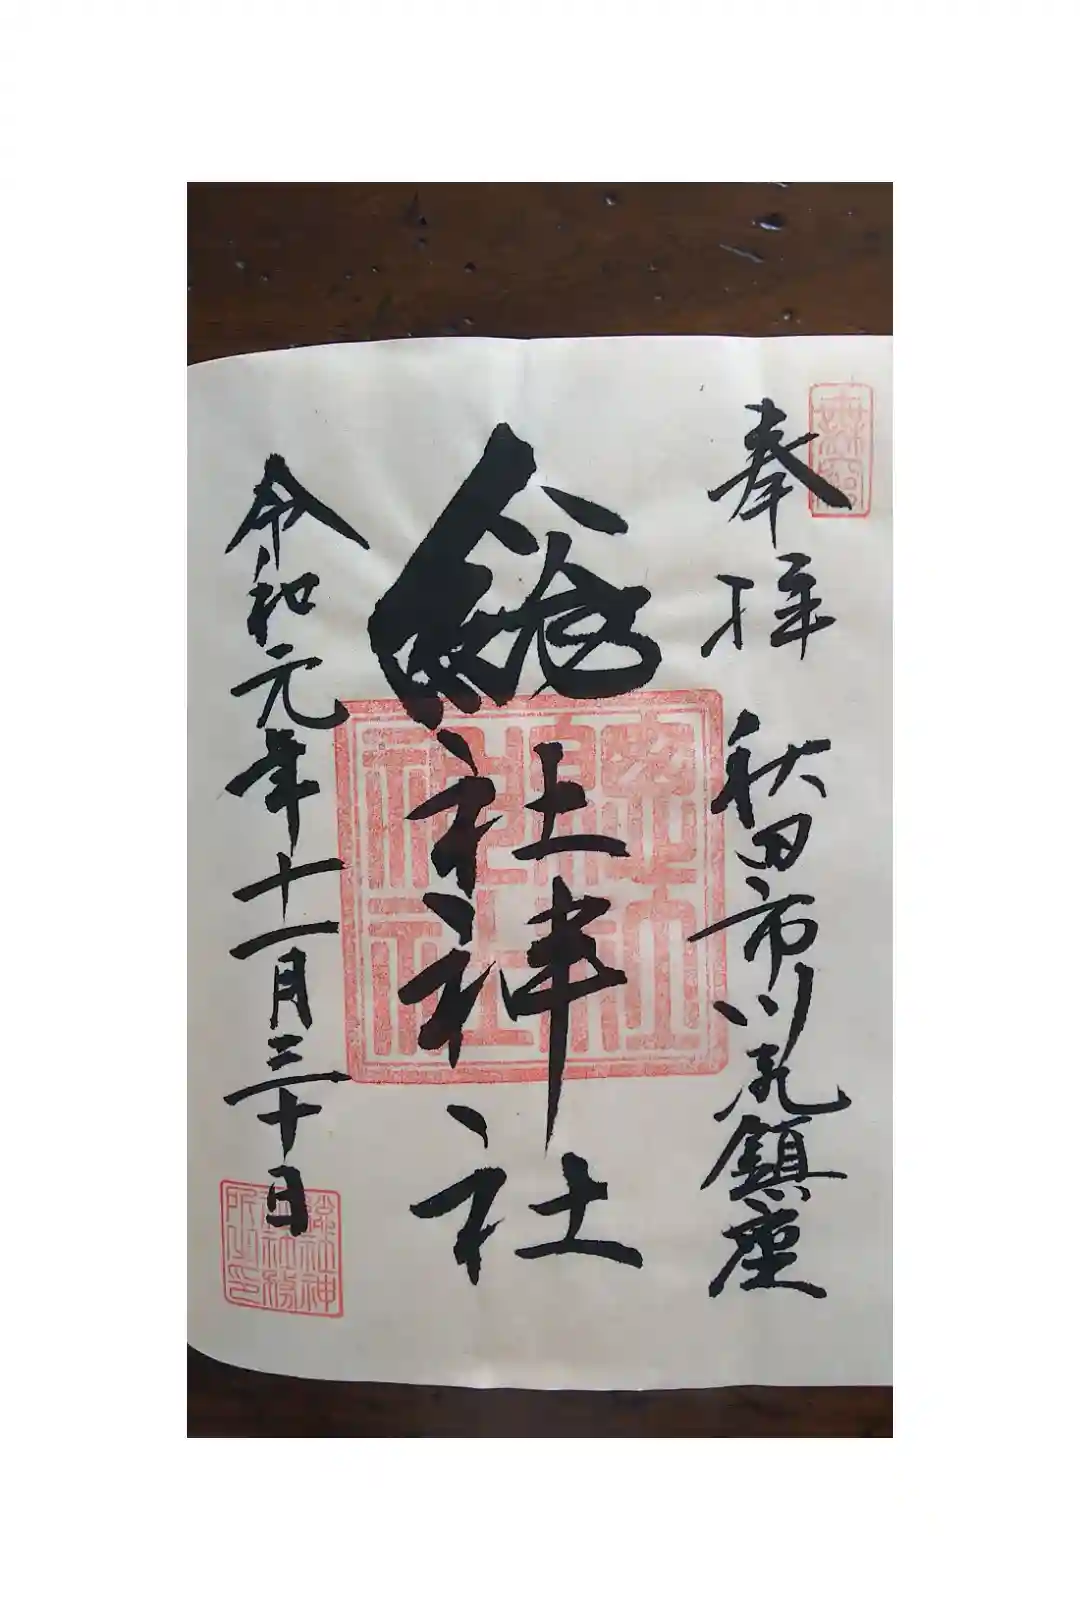 奉拝 秋田市川尻鎮座
總社神社
令和元年十一月三十日
總社神
社社務
所之印